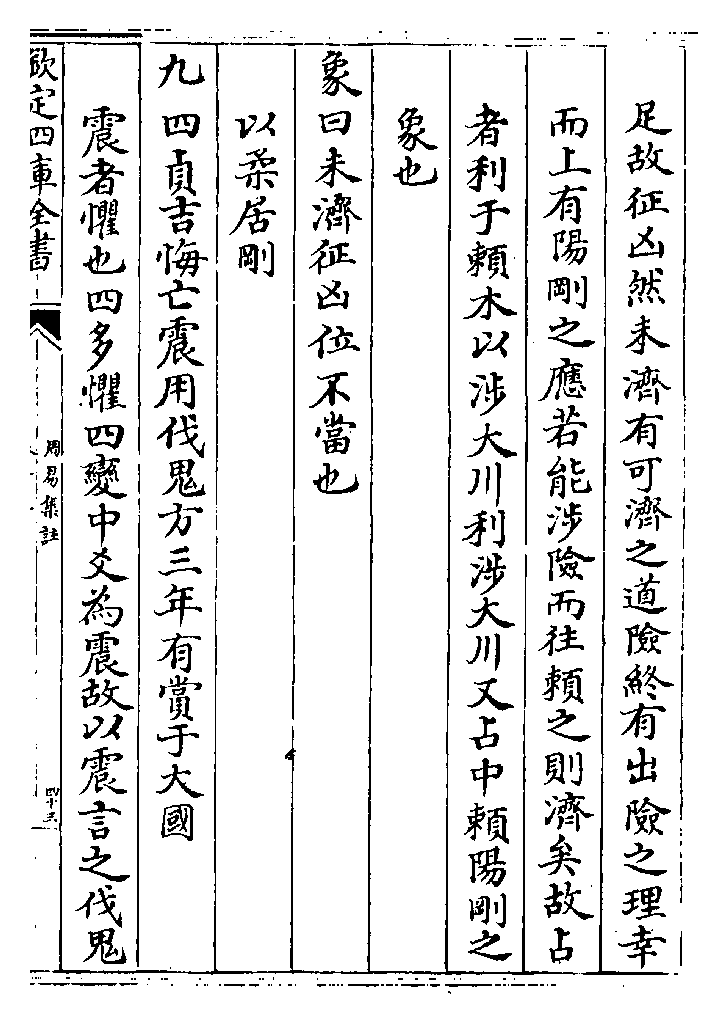 足故征凶然未濟有可濟之道險終有出險之理幸
而上有陽剛之應若能涉險而往賴之則濟矣故占
者利于賴木以涉大川利涉大川又占中賴陽剛之
象也
象曰未濟征凶位不當也
以柔居剛
九四貞吉悔亡震用伐鬼方三年有賞于大國
震者懼也四多懼四變中爻為震故以震言之伐鬼
欽定四庫全書
周易集註
四十三